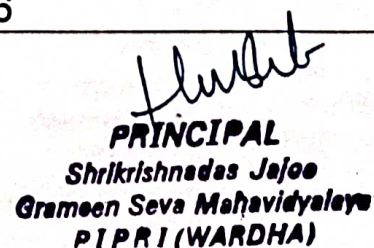 PRINCIPAL
Shrikrishnadas Jajoo
Grameen Seva Mahavidyalaya
PIPRI (WARDHA)